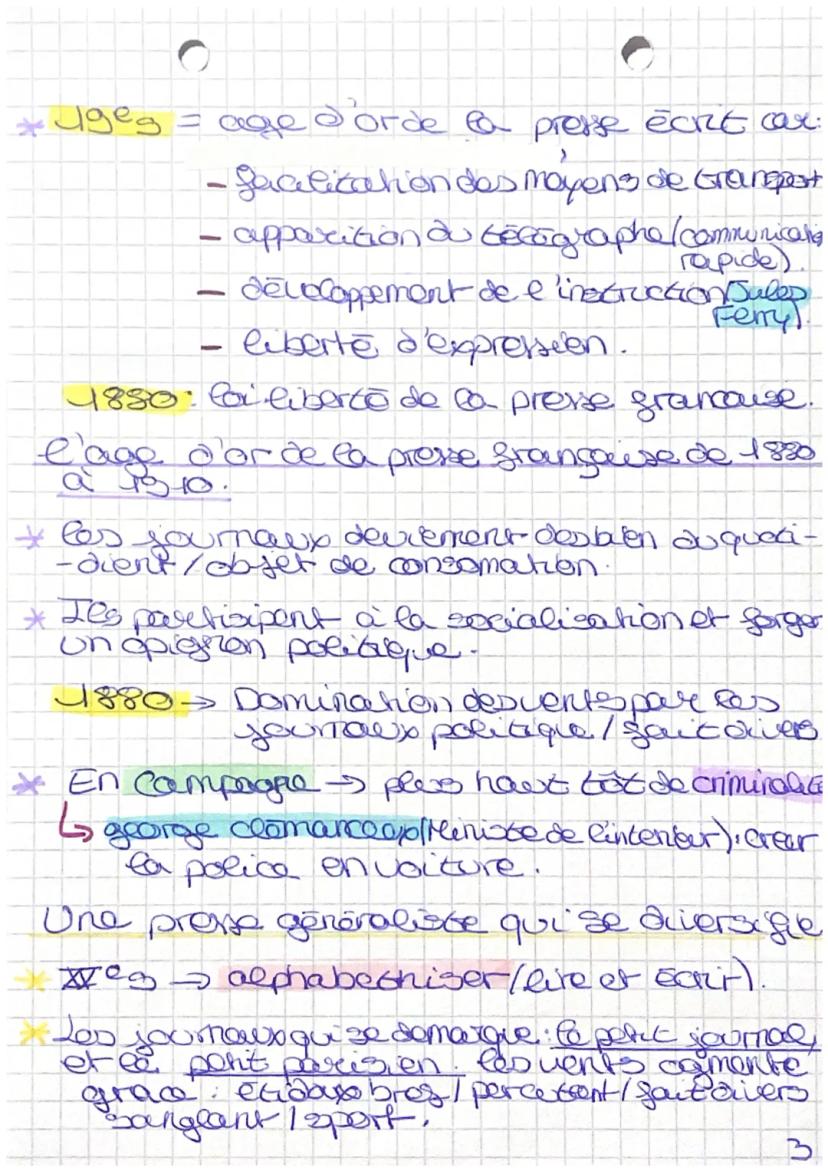 * 19e s = age d'or de la presse écrit car:
- facilitation des moyens de transport
- apparition du télégraphe (communicatio
rapide).
- développement de l'instruction (Jules
Ferry).
- liberté d'expression.
1880: loi liberté de la presse francaise.
l'age d'or de la presse française de 1880
à 1910.
* les journaux deviennent des bien du quoti-
-dient / objet de consomation.
* Ils participent à la socialisation et forger
un opignion politique.
1880 → Domination des vents par les
journaux politique / fait divers
* En campagne → plus haut tôt de criminalité
↳ george clémanceau (Ministe de l'interieur): creer
la police en voiture.
Une presse généraliste qui se diversifie
* XXe s → alphabethiser (lire et écrir).
* Les journaux qui se démarque: le petit journal,
et le petit parisien. les vents agmente
grace: bref / percetent / fait divers
sanglant / sport.
3